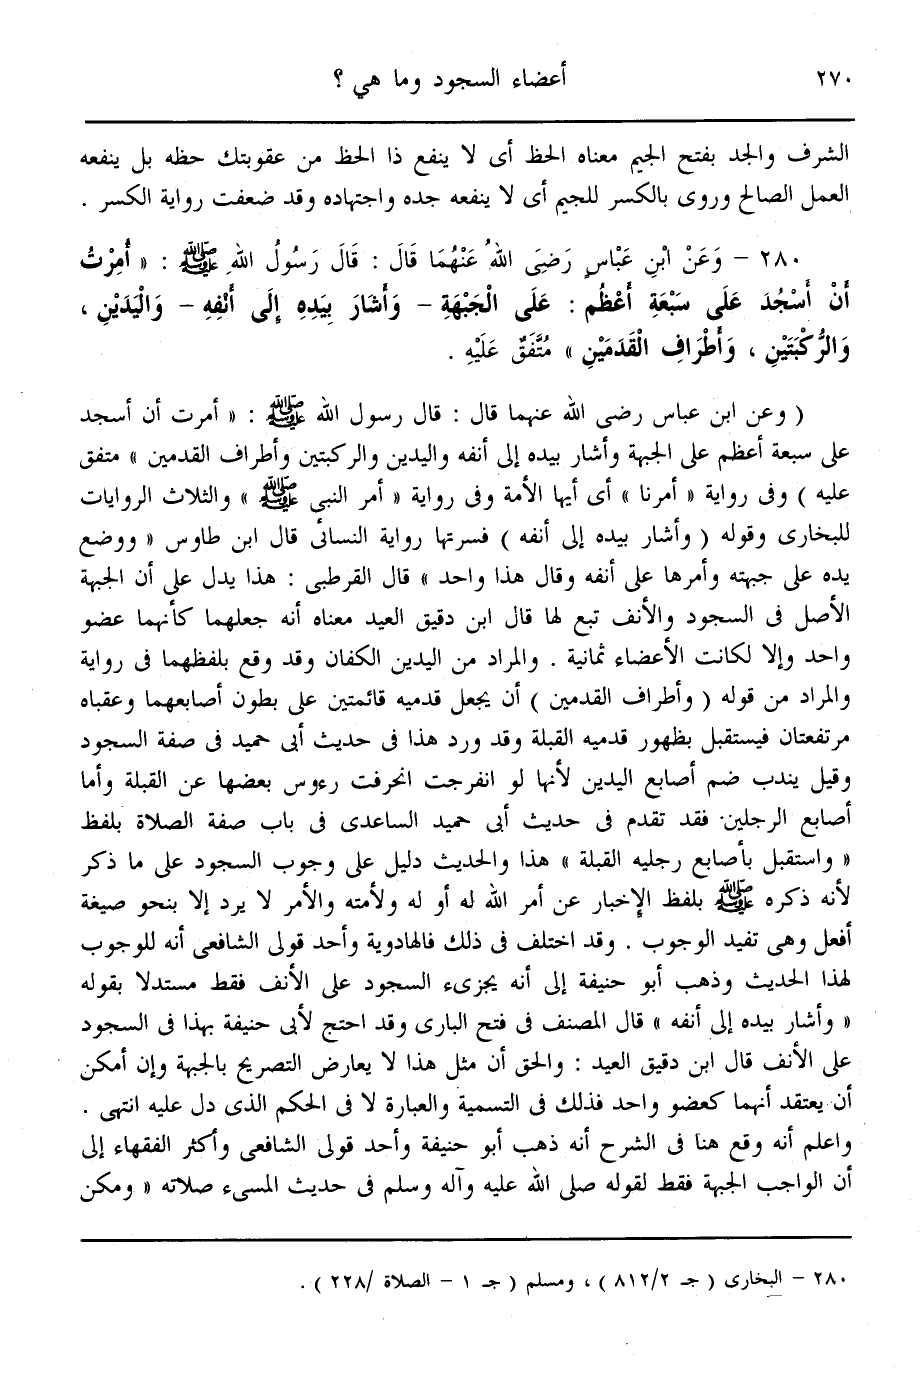 ٢٧٠
أعضاء السجود وما هي ؟
الشرف والجد بفتح الجيم معناه الحظ أى لا ينفع ذا الحظ من عقوبتك حظه بل ينفعه
العمل الصالح وروى بالكسر للجيم أى لا ينفعه جده واجتهاده وقد ضعفت رواية الكسر .
٢٨٠ – وَعَنْ ابْنِ عَبَّاسٍ رَضِىَ اللهُ عَنْهُمَا قَالَ : قَالَ رَسُولُ اللهِ ﷺ : « أُمِرْتُ
أَنْ أَسْجُدَ عَلَى سَبْعَةِ أَعْظُمٍ : عَلَى الْجَبْهَةِ – وَأَشَارَ بِيَدِهِ إِلَى أَنْفِهِ – وَالْيَدَيْنِ ،
وَالرُّكْبَتَيْنِ ، وَأَطْرَافِ الْقَدَمَيْنِ » مُتَّفَقٌ عَلَيْهِ .
( وعن ابن عباس رضى الله عنهما قال : قال رسول الله ﷺ : « أمرت أن أسجد
على سبعة أعظم على الجبهة وأشار بيده إلى أنفه واليدين والركبتين وأطراف القدمين » متفق
عليه ) وفى رواية « أمرنا » أى أيها الأمة وفى رواية « أمر النبى ﷺ » والثلاث الروايات
للبخارى وقوله ( وأشار بيده إلى أنفه ) فسرتها رواية النسائى قال ابن طاوس « ووضع
يده على جبهته وأمرها على أنفه وقال هذا واحد » قال القرطبى : هذا يدل على أن الجبهة
الأصل فى السجود والأنف تبع لها قال ابن دقيق العيد معناه أنه جعلهما كأنهما عضو
واحد وإلا لكانت الأعضاء ثمانية . والمراد من اليدين الكفان وقد وقع بلفظهما فى رواية
والمراد من قوله ( وأطراف القدمين ) أن يجعل قدميه قائمتين على بطون أصابعهما وعقباه
مرتفعتان فيستقبل بظهور قدميه القبلة وقد ورد هذا فى حديث أبى حميد فى صفة السجود
وقيل يندب ضم أصابع اليدين لأنها لو انفرجت انحرفت رءوس بعضها عن القبلة وأما
أصابع الرجلين فقد تقدم فى حديث أبى حميد الساعدى فى باب صفة الصلاة بلفظ
« واستقبل بأصابع رجليه القبلة » هذا والحديث دليل على وجوب السجود على ما ذكر
لأنه ذكره ﷺ بلفظ الإخبار عن أمر الله له أو له ولأمته والأمر لا يرد إلا بنحو صيغة
أفعل وهى تفيد الوجوب . وقد اختلف فى ذلك فالهادوية وأحد قولى الشافعى أنه للوجوب
لهذا الحديث وذهب أبو حنيفة إلى أنه يجزىء السجود على الأنف فقط مستدلا بقوله
« وأشار بيده إلى أنفه » قال المصنف فى فتح البارى وقد احتج لأبى حنيفة بهذا فى السجود
على الأنف قال ابن دقيق العيد : والحق أن مثل هذا لا يعارض التصريح بالجبهة وإن أمكن
أن يعتقد أنهما كعضو واحد فذلك فى التسمية والعبارة لا فى الحكم الذى دل عليه انتهى .
واعلم أنه وقع هنا فى الشرح أنه ذهب أبو حنيفة وأحد قولى الشافعى وأكثر الفقهاء إلى
أن الواجب الجبهة فقط لقوله صلى الله عليه وآله وسلم فى حديث المسىء صلاته « ومكن
٢٨٠ – البخارى ( جـ ٨١٢/٢ ) ، ومسلم ( جـ ١ – الصلاة /٢٢٨ ) .